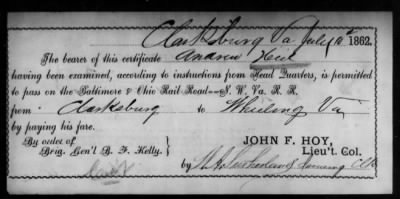 Clarksburg Va July 12 1862.
The bearer of this certificate Andrew
having been examined, according to instructions from Head Quarters, is permitted
to pass on the Baltimore & Ohio Rail Road--N. W. Va. R. R.
from Clarksburg to Wheeling Va
by paying his fare.
By order of
Brig. Gen'l B. F. Kelly.
JOHN F. HOY,
Lieu't. Col.
by